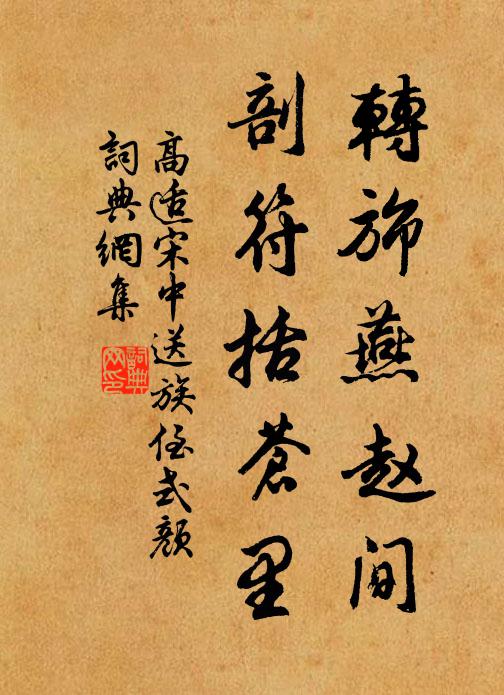 轉旆燕赵间
剖符括苍里
高适宋中送族侄式颜
詞典網集
詞典网印